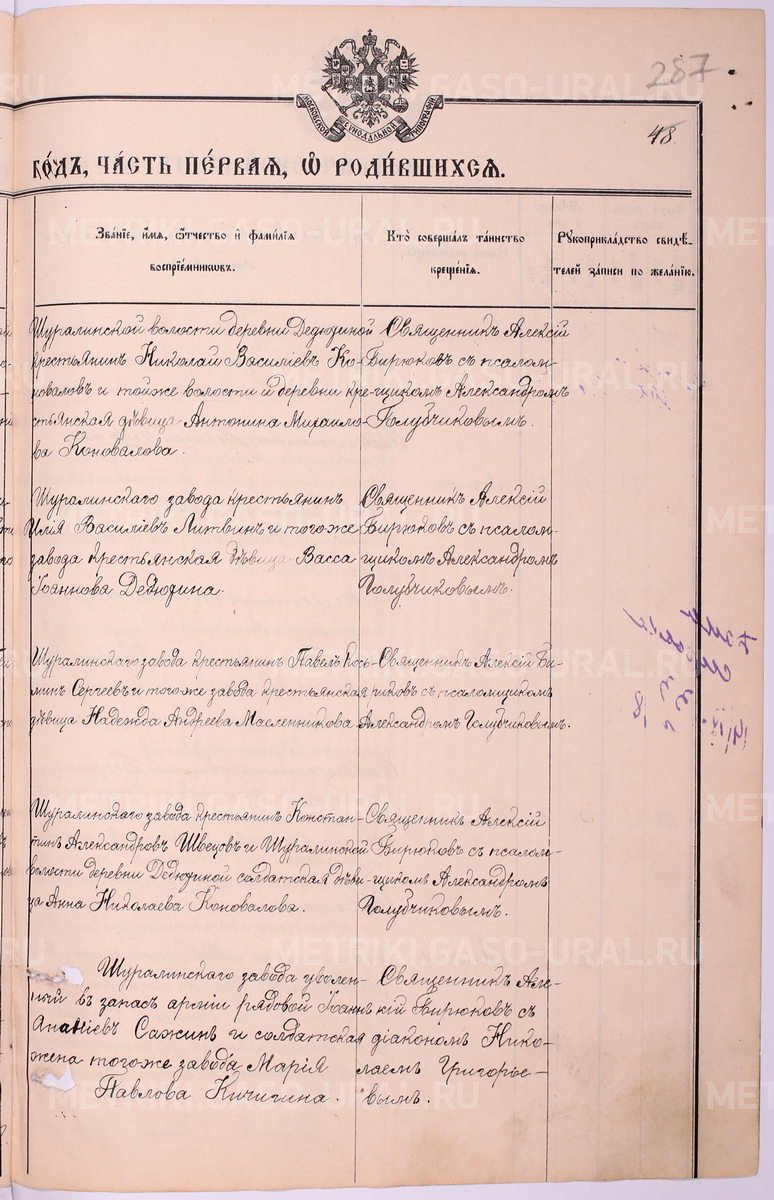 287
48.
МОСКОВСКОЙ СѴНОДАЛЬНОЙ ТИПОГРАФІИ
го́дъ, ча́сть пе́рваѧ, ѡ҆ роди́вшихсѧ.
Зва́ніе, и҆́мѧ, ѻ҆́тчество и҆ фами́лїѧ
воспрїе́мникѡвъ.
Кто̀ соверша́лъ та́инство
креще́нїѧ.
Рꙋкоприкла́дство свидѣ́-
телей за́писи по жела́нїю.
Шуралинской волости деревни Дедюдиной
крестьянинъ Николай Василіевъ Ко-
новаловъ и тойже волости и деревни кре-
стьянская дѣвица Антонина Михайло-
ва Коновалова.
Священникъ Алексій
Бирюковъ съ псалом-
щикомъ Александромъ
Голубчиковымъ.
Шуралинскаго завода крестьянинъ
Илія Василіевъ Литвинъ и тогоже
завода крестьянская дѣвица Васса
Іоаннова Дедюдина.
Священникъ Алексій
Бирюковъ съ псалом-
щикомъ Александромъ
Голубчиковымъ.
Шуралинскаго завода крестьянинъ Павелъ Кось-
минъ Сергеевъ и тогоже завода крестьянская
дѣвица Надежда Андреева Масленникова.
Священникъ Алексій Би-
рюковъ съ псаломщикомъ
Александромъ Голубчиковымъ.
Шуралинскаго завода крестьянинъ Констан-
тинъ Александровъ Швецовъ и Шуралинской
волости деревни Дедюдиной солдатская дѣви-
ца Анна Николаева Коновалова.
Священникъ Алексій
Бирюковъ съ псалом-
щикомъ Александромъ
Голубчиковымъ.
Шуралинскаго завода уволен-
ный въ запасъ арміи рядовой Іоаннъ
Ананіевъ Сажинъ и солдатская
жена тогоже завода Марія
Павлова Кичигина.
Священникъ Алек-
сій Бирюковъ съ
діакономъ Нико-
лаемъ Григорье-
вымъ.
METRIKI.GASO-URAL.RU